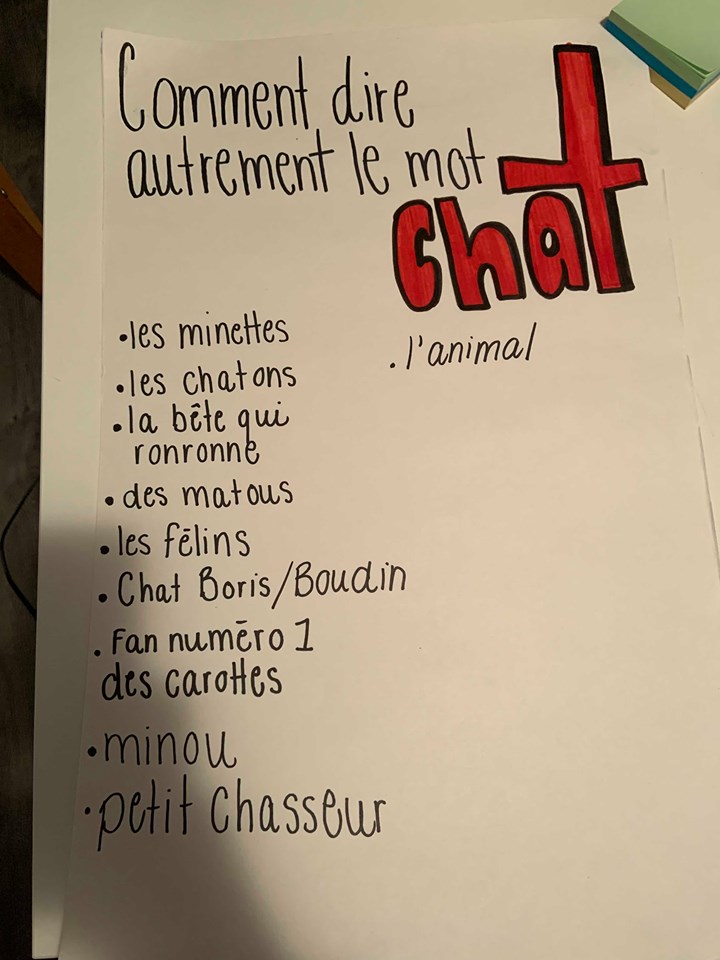 Comment dire
autrement le mot
chat
•les minettes
•les chatons
•la bête qui
ronronne
•des matous
•les félins
•Chat Boris/Boudin
.Fan numéro 1
des carottes
•minou
•petit chasseur
.l'animal